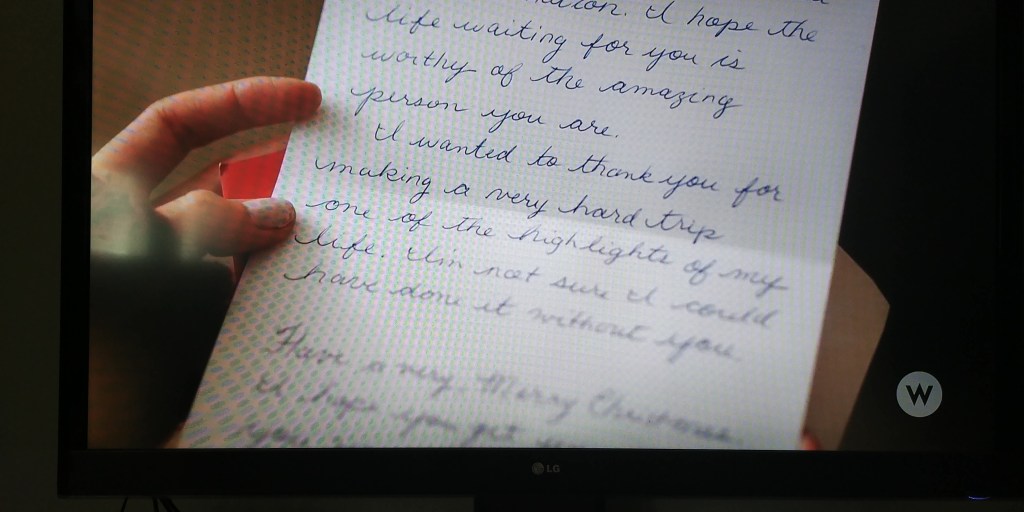 I hope the
life waiting for you is
worthy of the amazing
person you are.
I wanted to thank you for
making a very hard trip
one of the highlights of my
life. I'm not sure I could
have done it without you
Have a very Merry Christmas
I hope you get
you
W
LG